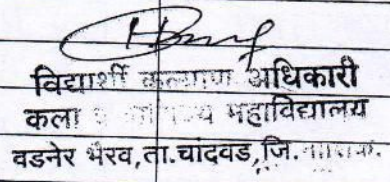 विद्यार्थी कल्याण अधिकारी
कला महाविद्यालय
वडनेर भैरव,ता.चांदवड,जि.